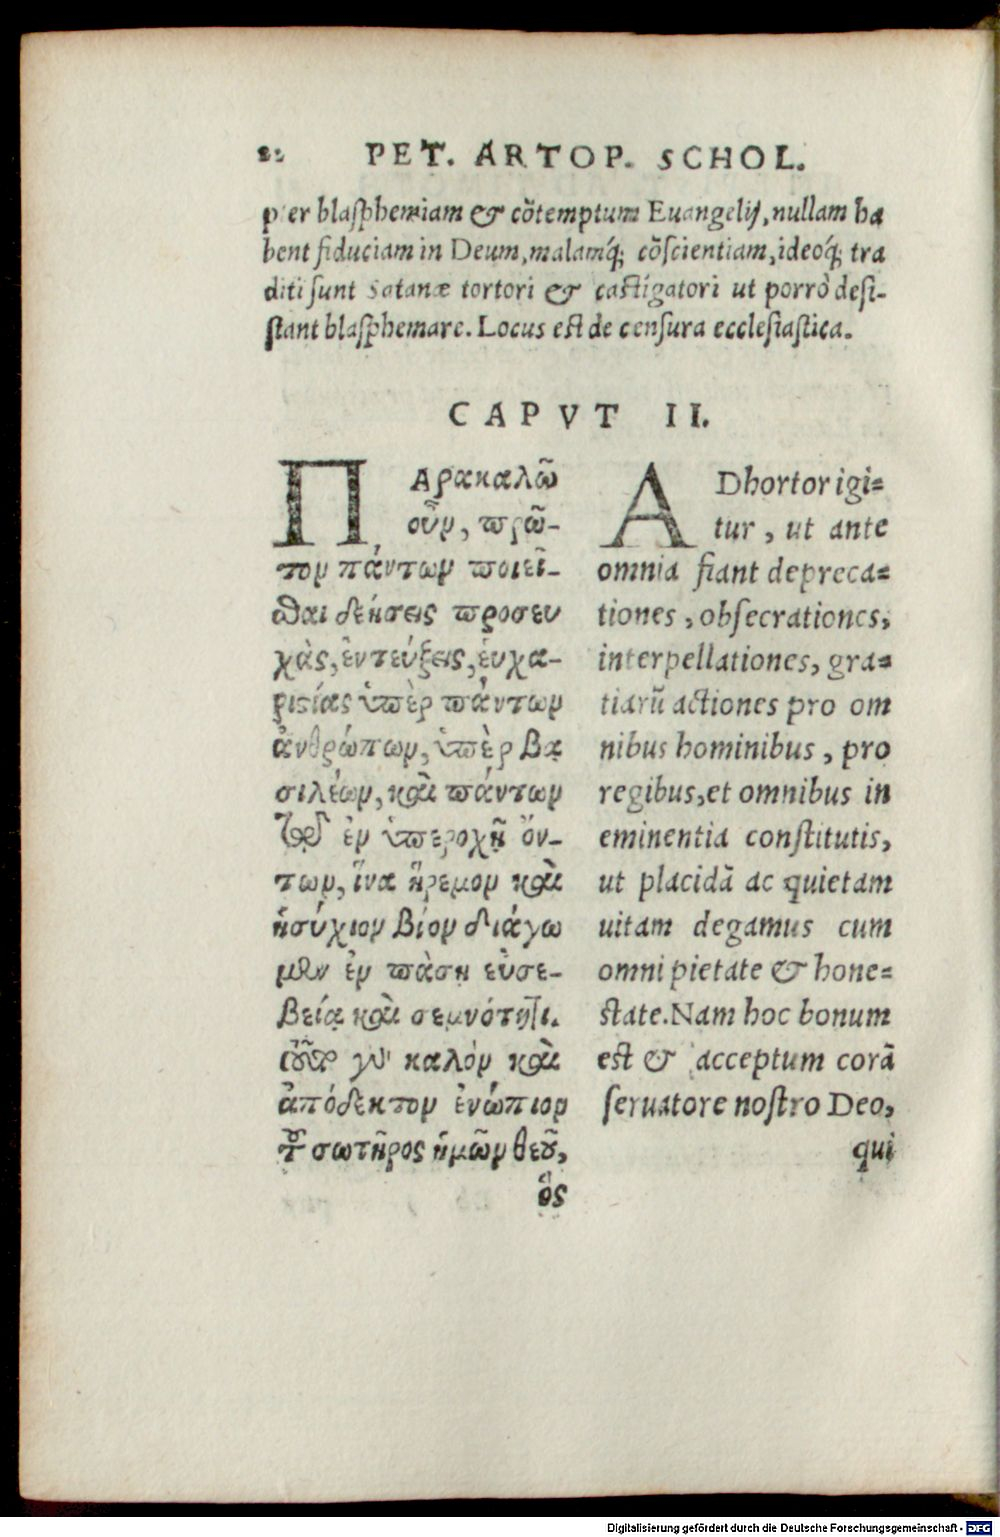 PET. ARTOP. SCHOL.
per blasphemiam & cõtemptum Euangelij, nullam ha
bent fiduciam in Deum, malamq́; cõscientiam, ideoq́; tra
diti sunt Satanæ tortori & castigatori ut porrò desi-
stant blasphemare. Locus est de censura ecclesiastica.
CAPVT II.
ΠΑρακαλῶ
οὖν, πρῶ-
τον πάντων ποιεῖ-
σθαι δεήσεις προσευ
χὰς, ἐντεύξεις, ἐυχα-
ριστίας ὑπὲρ πάντων
ἀνθρώπων, ὑπὲρ βα
σιλέων, καὶ πάντων
τῶν ἐν ὑπεροχῇ ὄν-
των, ἵνα ἤρεμον καὶ
ἡσύχιον βίον διάγω
μεν ἐν πάσῃ εὐσε-
βείᾳ καὶ σεμνότητι.
τοῦτο γὰρ καλὸν καὶ
ἀπόδεκτον ἐνώπιον
τοῦ σωτῆρος ἡμῶν θεοῦ,
ὃς
ADhortor igi=
tur, ut ante
omnia fiant depreca=
tiones, obsecrationes,
interpellationes, gra=
tiarũ actiones pro om
nibus hominibus, pro
regibus, et omnibus in
eminentia constitutis,
ut placidã ac quietam
uitam degamus cum
omni pietate & hone=
state. Nam hoc bonum
est & acceptum corã
seruatore nostro Deo,
qui
Digitalisierung gefördert durch die Deutsche Forschungsgemeinschaft - DFG